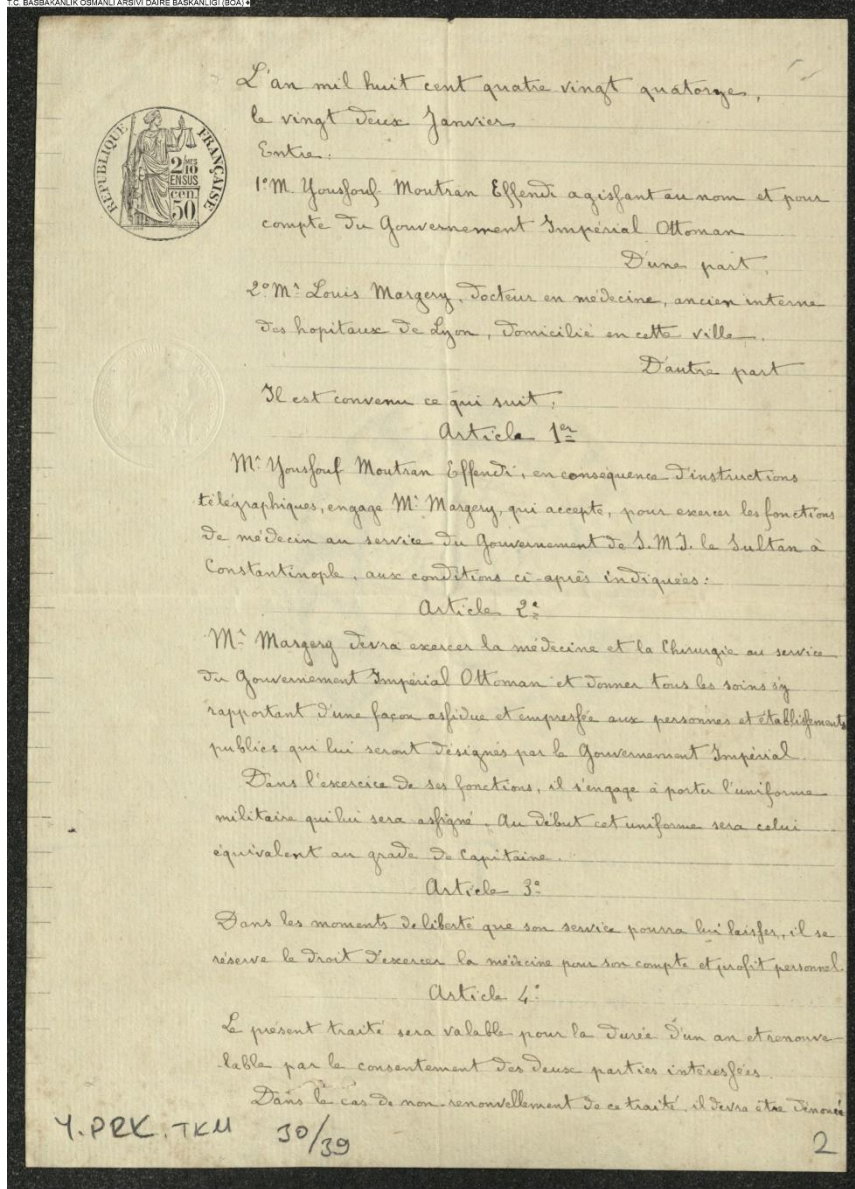 T.C. BASBAKANLIK OSMANLI ARSIVI DAIRE BASKANLIGI (BOA)
L'an mil huit cent quatre vingt quatorze,
le vingt deux Janvier
Entre:
RÉPUBLIQUE FRANÇAISE
2/10
EN SUS
50 cen.
1º M. Yousfouf Moutran Effendi agissant au nom et pour
compte du Gouvernement Impérial Ottoman
D'une part,
2º Mr Louis Margery, docteur en médecine, ancien interne
des hopitaux de Lyon, domicilié en cette ville.
D'autre part
Il est convenu ce qui suit,
Article 1er
Mr Yousfouf Moutran Effendi, en conséquence d'instructions
télégraphiques, engage Mr Margery, qui accepte, pour exercer les fonctions
de médecin au service du Gouvernement de S.M.I. le Sultan à
Constantinople, aux conditions ci-après indiquées:
Article 2e
Mr Margery devra exercer la médecine et la Chirurgie au service
du Gouvernement Impérial Ottoman et donner tous les soins s'y
rapportant d'une façon assidue et empressée aux personnes et établissements
publics qui lui seront désignés par le Gouvernement Impérial.
Dans l'exercice de ses fonctions, il s'engage à porter l'uniforme
militaire qui lui sera assigné. Au début cet uniforme sera celui
équivalent au grade de Capitaine.
Article 3e
Dans les moments de liberté que son service pourra lui laisser, il se
réserve le droit d'exercer la médecine pour son compte et profit personnel.
Article 4e
Le présent traité sera valable pour la durée d'un an et renouve-
lable par le consentement des deux parties intéressées.
Dans le cas de non-renouvellement de ce traité, il devra être dénoncé
Y.PRK.TKM 30/39
2